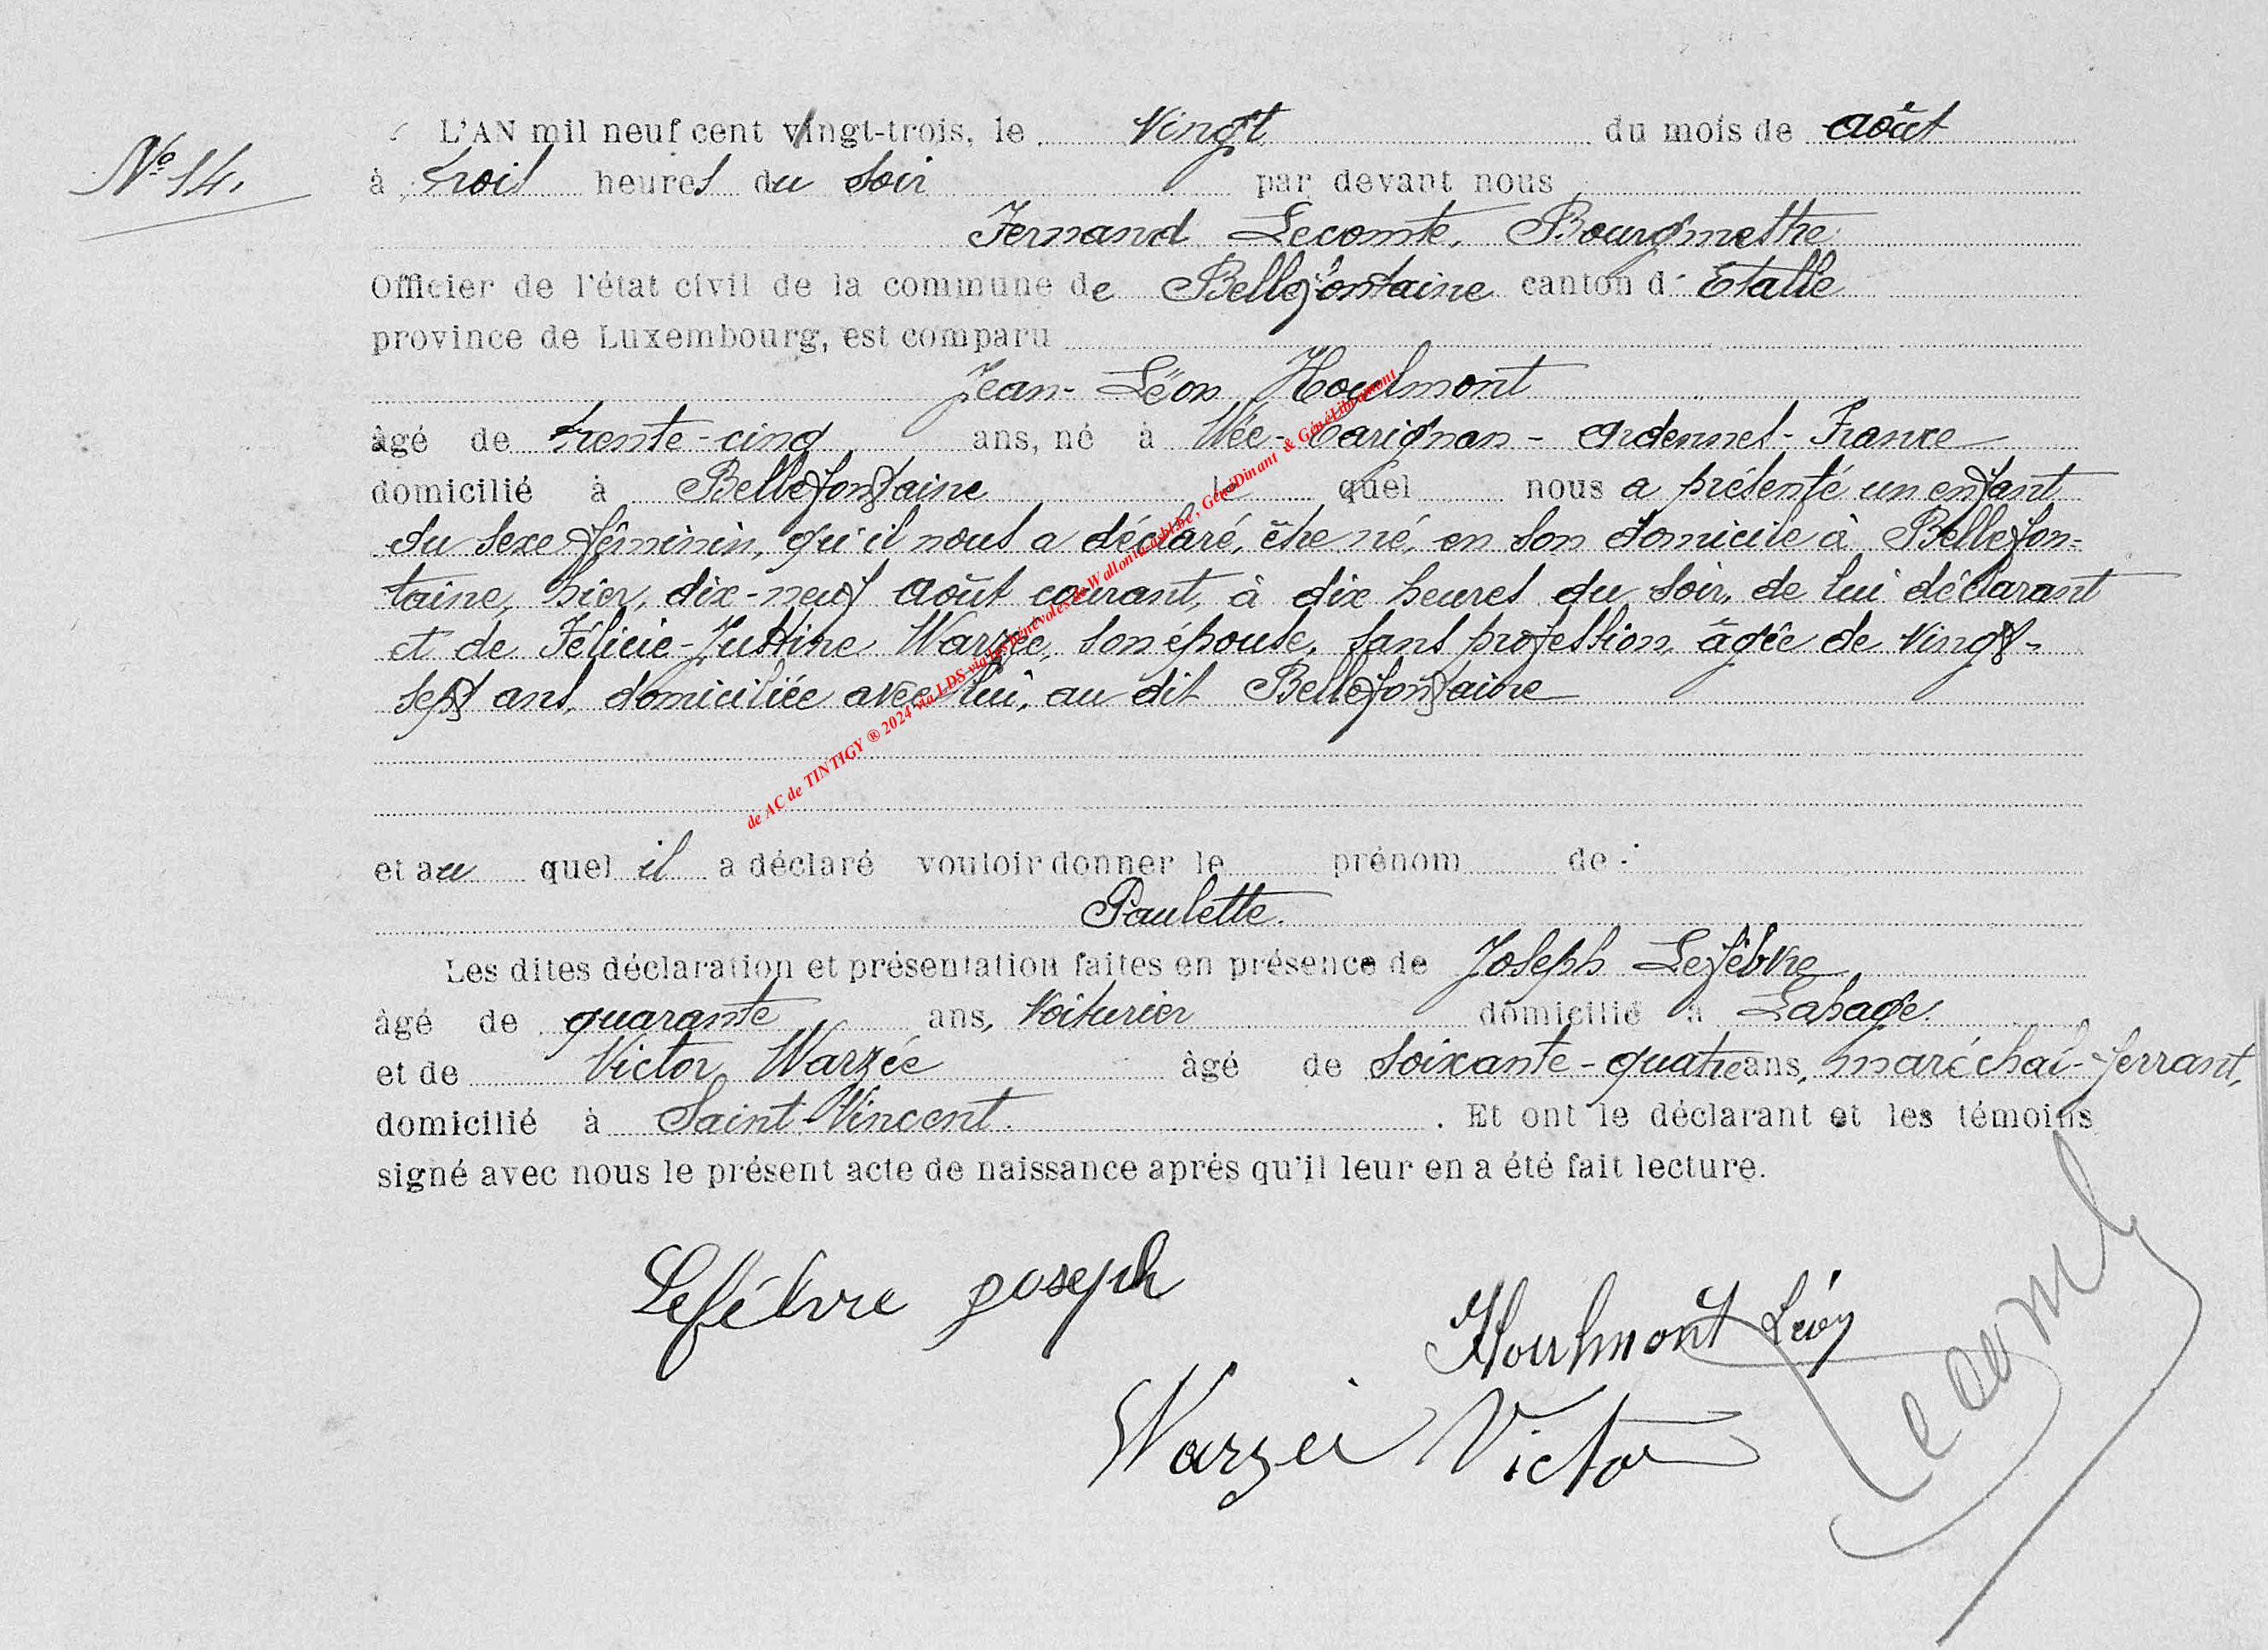 N° 14.
L'AN mil neuf cent vingt-trois, le Vingt du mois de août
à trois heures du soir par devant nous
Fernand Lecomte, Bourgmestre
Officier de l'état civil de la commune de Bellefontaine canton d'Etalle
province de Luxembourg, est comparu
Jean-Léon Houlmont
âgé de trente-cinq ans, né à Wée-Carignan - Ardennes - France
domicilié à Bellefontaine le quel nous a présenté un enfant
du sexe féminin, qu'il nous a déclaré, être né, en son domicile à Bellefon-
taine, hier, dix-neuf août courant, à dix heures du soir, de lui déclarant
et de Félicie-Justine Warzée, son épouse, sans profession, âgée de vingt-
sept ans, domiciliée avec lui, au dit Bellefontaine
et au quel il a déclaré vouloir donner le prénom de :
Paulette.
Les dites déclaration et présentation faites en présence de Joseph Lefèbvre
âgé de quarante ans, Voiturier domicilié à Lahage
et de Victor Warzée âgé de soixante-quatre ans, maréchal-ferrant,
domicilié à Saint-Vincent. Et ont le déclarant et les témoins
signé avec nous le présent acte de naissance après qu'il leur en a été fait lecture.
Lefébvre Joseph
Houlmont Léon
Warzée Victor
Lecomte
de AC de TINTIGY ® 2024 via LDS via les bénévoles de Wallonia-asbl.be, GénéDinant & GénéLibramont